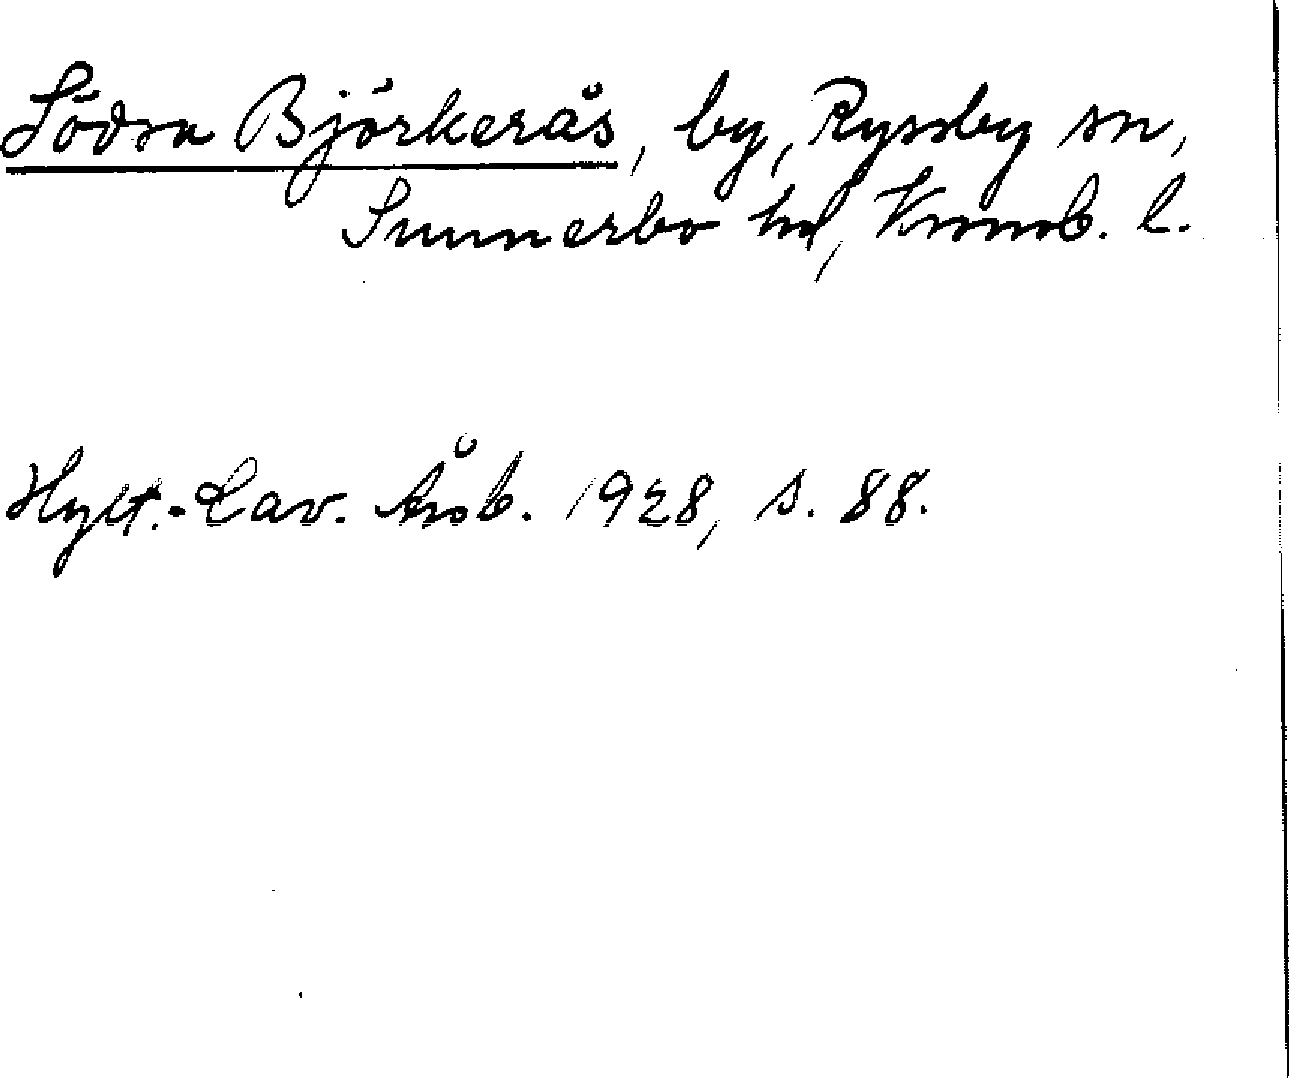 Södra Björkerås, by, Ryssby sn,
Sunnerbo hd, Kronob. l.
Hylt.-Cav. årsb. 1928, s. 88.